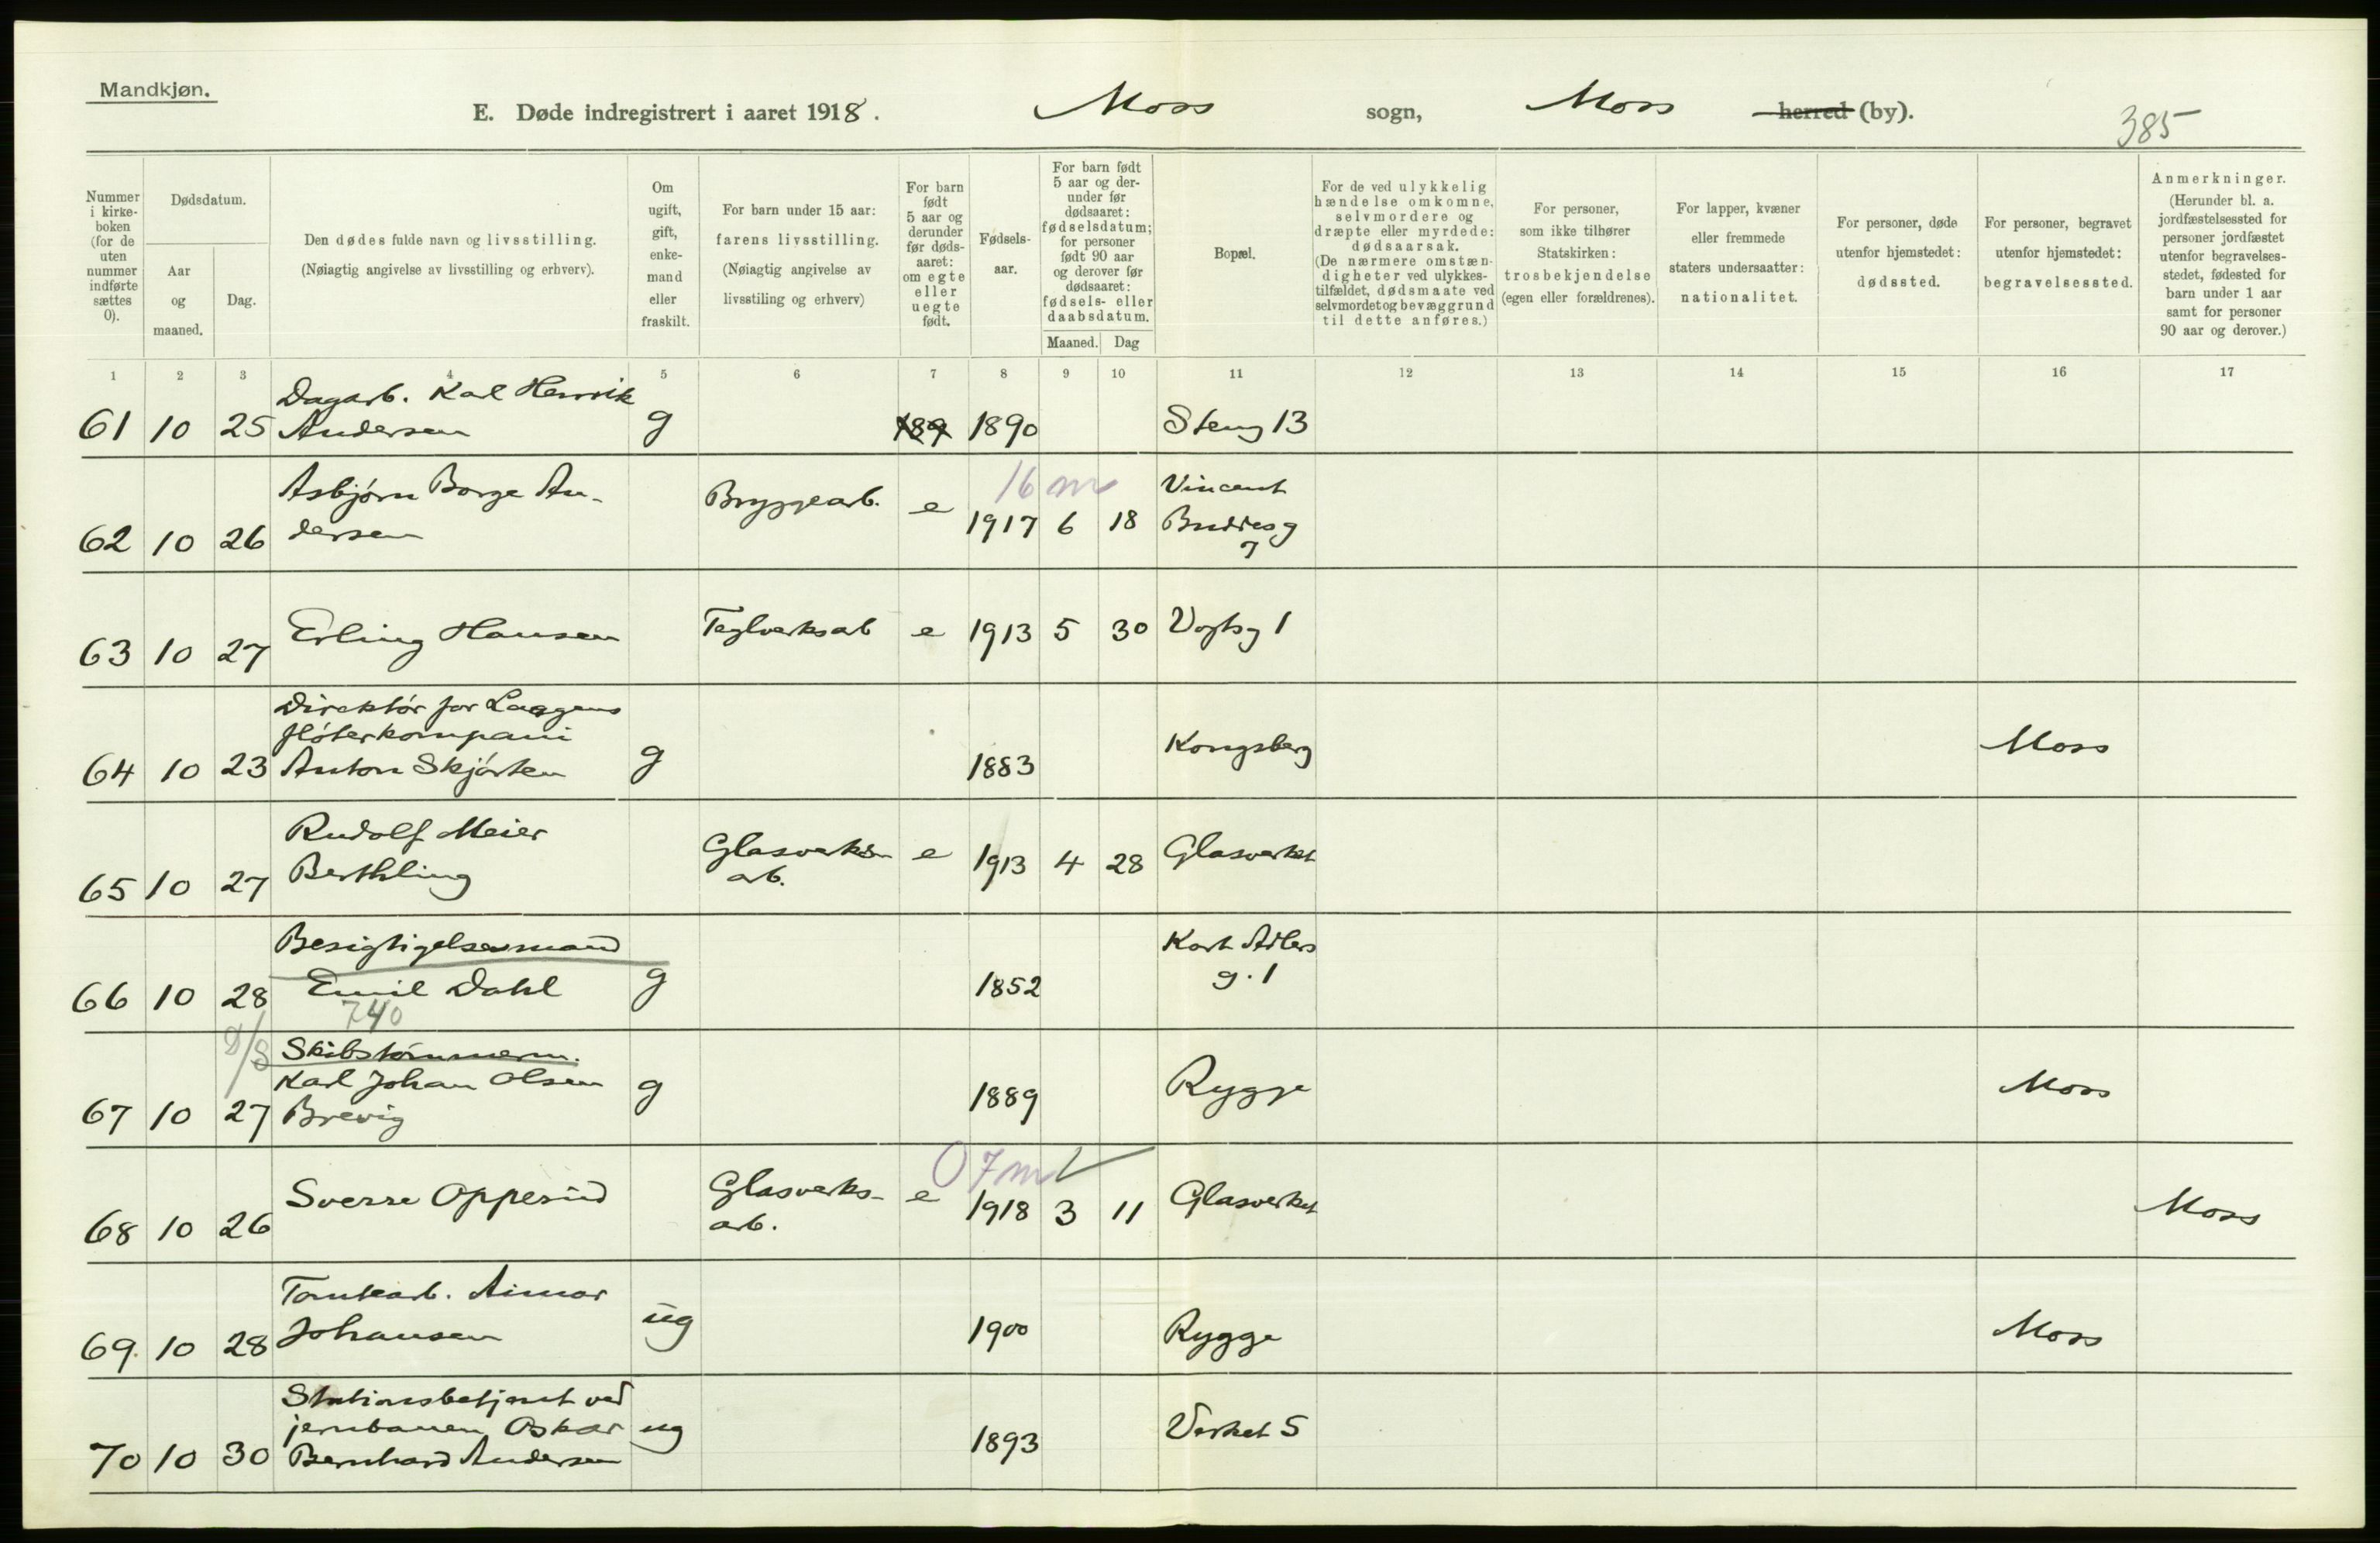 Mandkjøn.
E. Døde indregistrert i aaret 1918. Moss sogn, Moss herred (by).
385
Nummer i kirke- boken (for de uten nummer indførte sættes 0).
Dødsdatum.
Aar og maaned.
Dag.
Den dødes fulde navn og livsstilling.
(Nøiagtig angivelse av livsstilling og erhverv).
Om ugift, gift, enke- mand eller fraskilt.
For barn under 15 aar: farens livsstilling.
(Nøiagtig angivelse av livsstiling og erhverv)
For barn født 5 aar og derunder før døds- aaret: om egte eller uegte født.
Fødsels- aar.
For barn født 5 aar og der- under før dødsaaret: fødselsdatum; for personer født 90 aar og derover før dødsaaret: fødsels- eller daabsdatum.
Maaned. Dag
Bopæl.
For de ved ulykkelig hændelse omkomne, selvmordere og dræpte eller myrdede: dødsaarsak.
(De nærmere omstæn- digheter ved ulykkes- tilfældet, dødsmaate ved selvmordet og bevæggrund til dette anføres.)
For personer, som ikke tilhører Statskirken: trosbekjendelse (egen eller forældrenes).
For lapper, kvæner eller fremmede staters undersaatter: nationalitet.
For personer, døde utenfor hjemstedet: dødssted.
For personer, begravet utenfor hjemstedet: begravelsessted.
Anmerkninger.
(Herunder bl. a. jordfæstelsessted for personer jordfæstet utenfor begravelses- stedet, fødested for barn under 1 aar samt for personer 90 aar og derover.)
1 2 3 4 5 6 7 8 9 10 11 12 13 14 15 16 17
Dagarb. Karl Henrik
61 10 25 Andersen g 189 1890 Steng 13
Asbjørn Borge An-
Bryggearb. e 16 m Vincent
62 10 26 dersen 1917 6 18 Buddesg
7
63 10 27 Erling Hansen Teglverksarb e 1913 5 30 Vogtsg 1
Direktør for Laagens
fløterkompani
64 10 23 Anton Skjørten g 1883 Kongsberg Moss
Rudolf Meier
65 10 27 Berthling Glasverks- arb. e 1913 4 28 Glasverket
Besigtigelsesmand Kort Adlers
66 10 28 Emil Dahl g 1852 g. 1
740
D/S Skibstømmerm.
Karl Johan Olsen g Rygge Moss
67 10 27 Brevig 1889
0 7m
68 10 26 Sverre Opperud Glasverks- arb. e 1918 3 11 Glasverket Moss
Tomtearb. Aimar
69. 10 28 Johansen ug 1900 Rygge Moss
Stationsbetjent ved
jernbanen Oskar ug Verket 5
70 10 30 Bernhard Andersen 1893